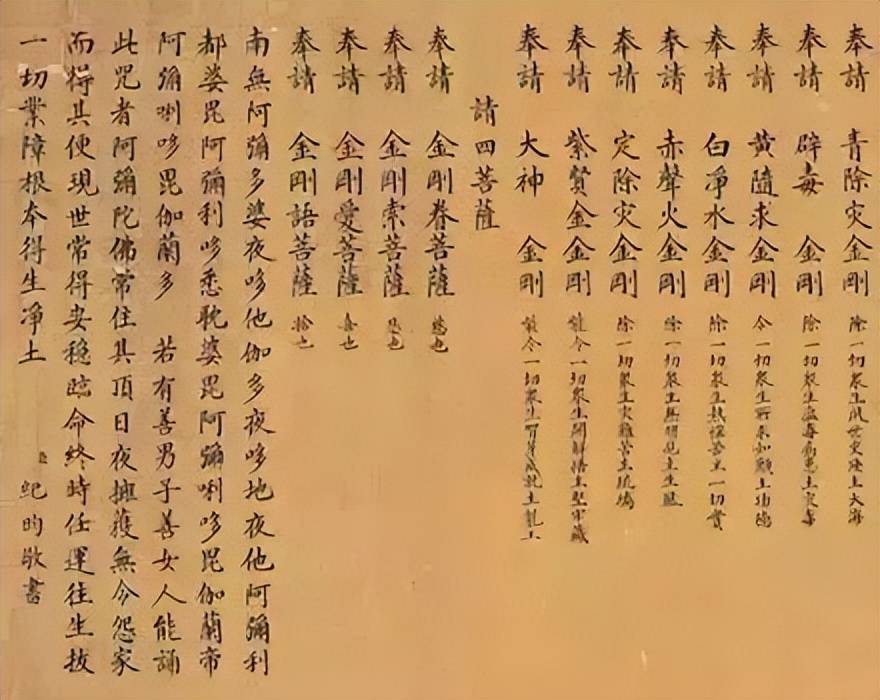 奉請 青除灾金剛 除一切衆生
奉請 辟毒金剛 除一切衆生
奉請 黃隨求金剛 令一切衆生所求如願
奉請 白淨水金剛 除一切衆生熱惱苦
奉請 赤聲火金剛 除一切衆生
奉請 定除灾金剛 除一切衆生灾難苦
奉請 紫賢金剛 能令一切衆生開解悟
奉請 大神金剛 能令一切衆生
請四菩薩
奉請 金剛眷菩薩 慈也
奉請 金剛索菩薩 悲也
奉請 金剛愛菩薩 喜也
奉請 金剛語菩薩 捨也
南無阿彌多婆夜哆他伽多夜哆地夜他阿彌利
都婆毘阿彌利哆悉耽婆毘阿彌唎哆毘伽蘭帝
阿彌唎哆毘伽蘭多 若有善男子善女人能誦
此咒者阿彌陀佛常住其頂日夜擁護無令怨家
而得其便現世常得安穩臨命終時任運往生拔
一切業障根本得生淨土
臣 紀昀敬書